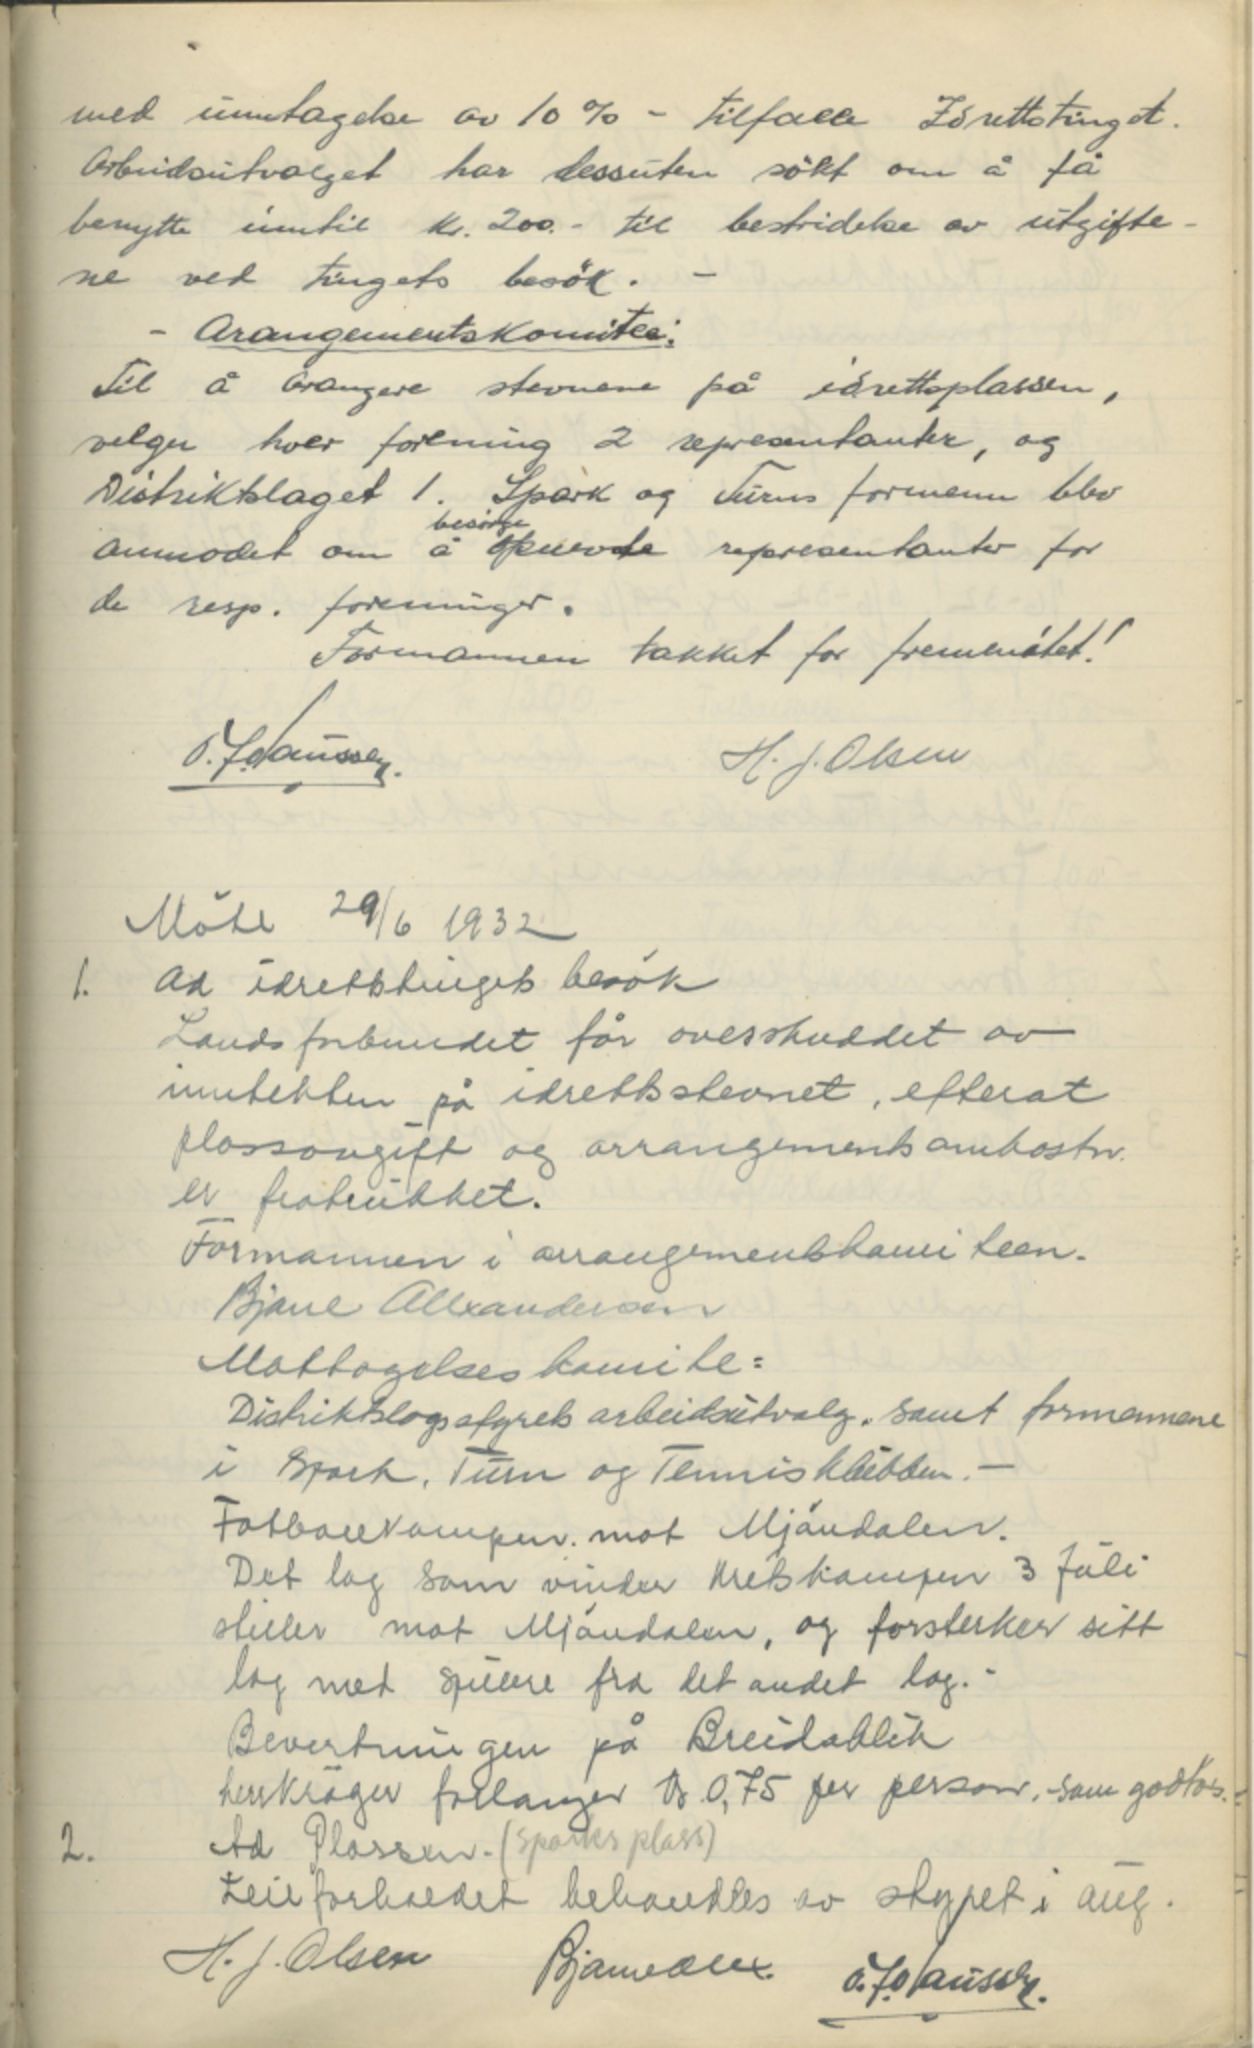 med unntagelse av 10 % - tilfalle Idrettstinget.
Arbeidsutvalget har dessuten søkt om å få
benytte inntil kr. 200.- til bestridelse av utgifte-
ne ved tingets besøk. -
- Arangementskomitee:
Til å arangere stevnene på idrettsplassen,
velger hver forening 2 representanter, og
Distriktslaget 1. Spark og Turns formenn blev
anmodet om å besørge representanter for
de resp. foreninger.
Formannen takket for fremmøtet!
H. J. Olsen
Møte 29/6 1932
1. Ad idrettstingets besøk
Landsforbundet får overskuddet av
inntekten på idrettsstevnet, efterat
plassavgift og arrangementsomkostn.
er fratrukket.
Formannen i arrangementskomiteen.
Bjarne Alexandersen
Mottagelseskomite:
Distriktslagsstyrets arbeidsutvalg. samt formennene
i Spark, Turn og Tennisklubben. -
Fotballkampen. mot Mjøndalen.
Det lag som vinder kretskampen 3 Juli
stiller mot Mjøndalen, og forsterker sitt
lag med spillere fra det andet lag. -
Bevertningen på Breidablik
herr Krøger forlanger kr 0,75 per person. som godtas.
2. Ad Plassen. (Sparks plass)
Leieforholdet behandles av styret i aug.
H. J. Olsen Bjarne Alex.